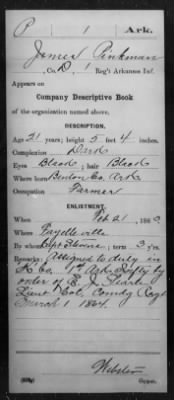 P | 1 | Ark.
James Pinkman
, Co. D, 1 Reg't Arkansas Inf.
Appears on
Company Descriptive Book
of the organization named above.
DESCRIPTION.
Age 21 years; height 5 feet 4 inches.
Complexion Dark
Eyes Black; hair Black
Where born Benton Co. Ark
Occupation Farmer
ENLISTMENT.
When Feb 21, 186
Where Fayetteville
By whom Capt ; term 3 y'rs.
Remarks: Assigned to duty in
Co. 1st Ark Infty by
order of E. J. Searle
Lieut Col. Comdg Regt
March 1 1864.
Webster
Copyist.